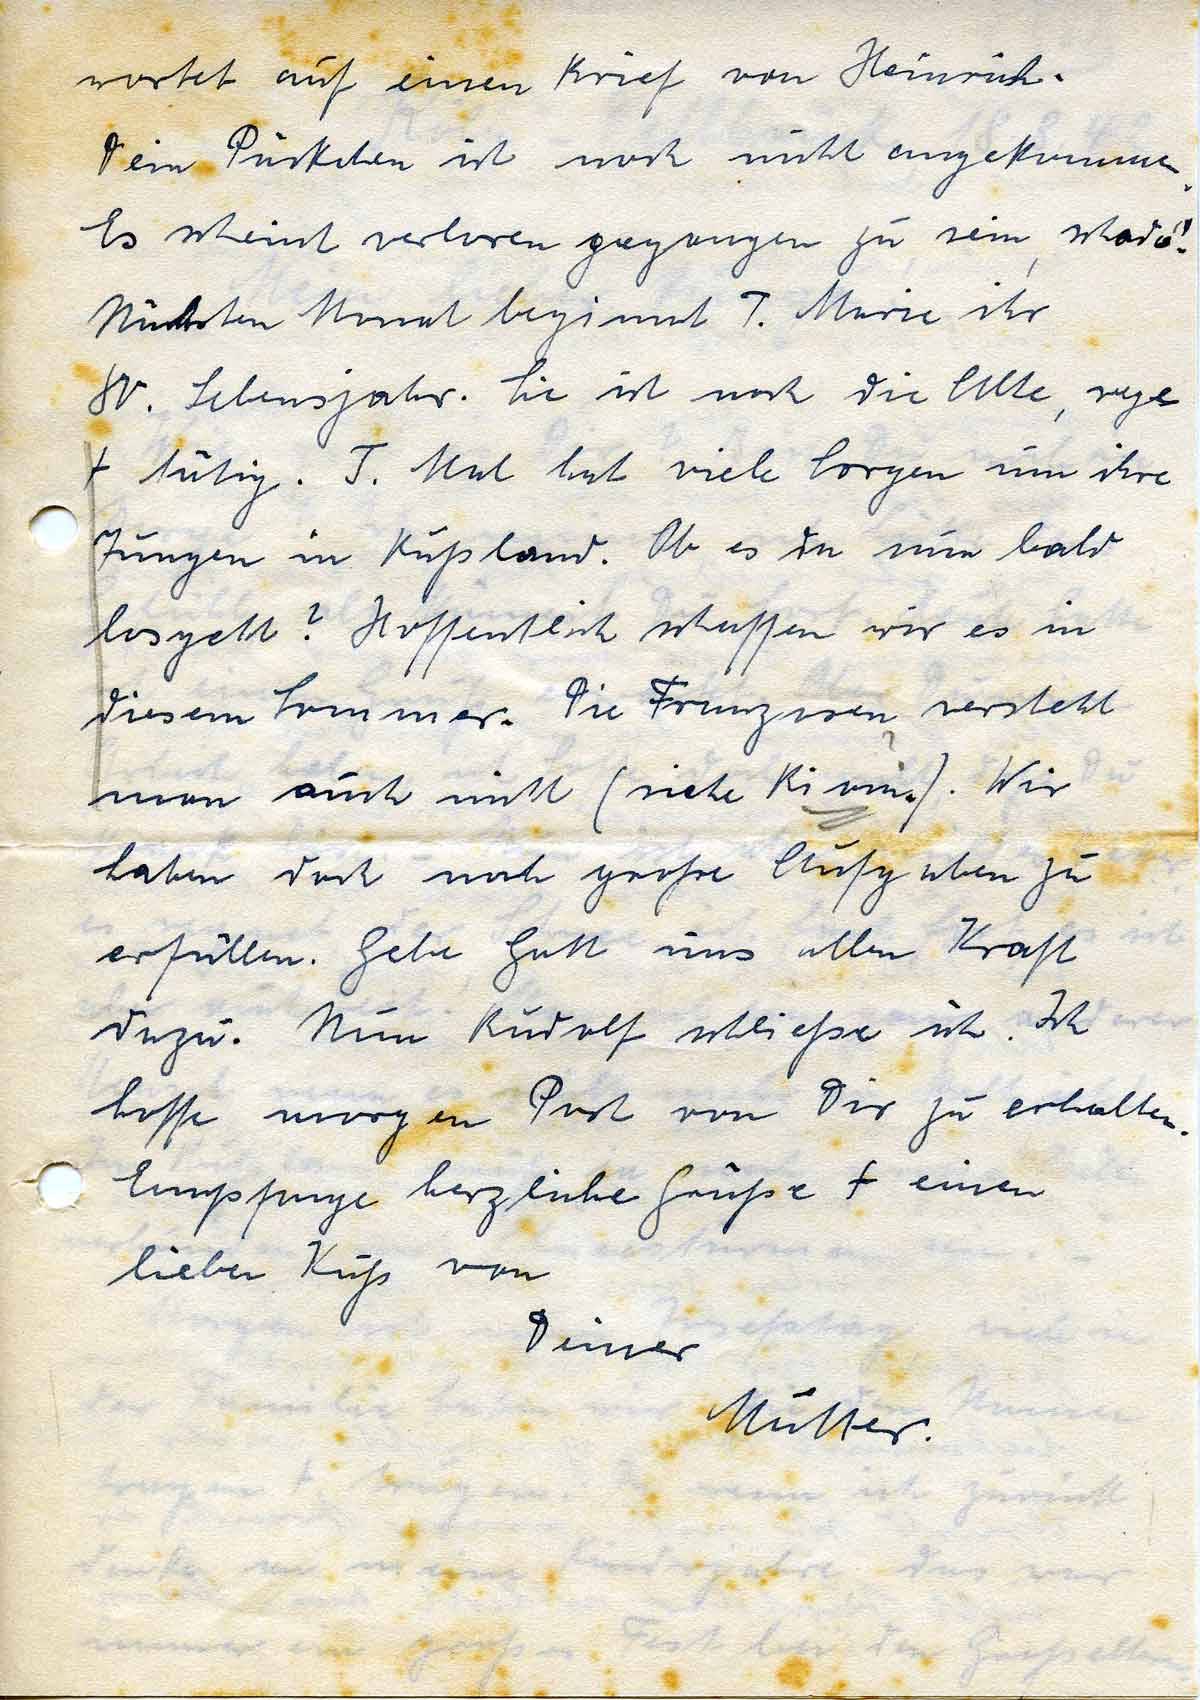 wartet auf einen Brief von Heinrich.
Dein Päckchen ist noch nicht angekommen.
Es scheint verloren gegangen zu sein, schade!
Nächsten Monat beginnt T. Marie ihr
80. Lebensjahr. Sie ist noch die Alte, rege
+ tätig. T. Mal hat viele Sorgen um ihre
Jungen in Rußland. Ob es da nun bald
losgeht? Hoffentlich schaffen wir es in
diesem Sommer. Die Franzosen versteht
man auch nicht (siehe
). Wir
haben doch noch große Aufgaben zu
erfüllen. Gebe Gott uns allen Kraft
dazu. Nun Rudolf schließe ich. Ich
hoffe morgen Post von Dir zu erhalten.
Empfange herzliche Grüße + einen
lieben Kuß von
Deiner
Mutter.